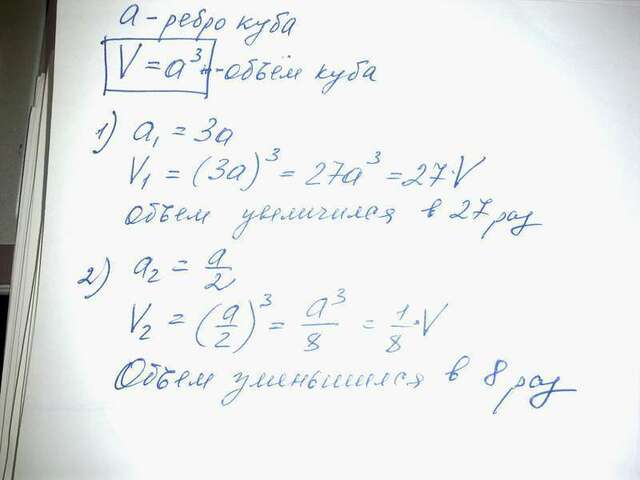 a - ребро куба
V = a³ - объём куба
1) a₁ = 3a
V₁ = (3a)³ = 27a³ = 27·V
объем увеличился в 27 раз
2) a₂ = a/2
V₂ = (a/2)³ = a³/8 = 1/8·V
Объем уменьшился в 8 раз